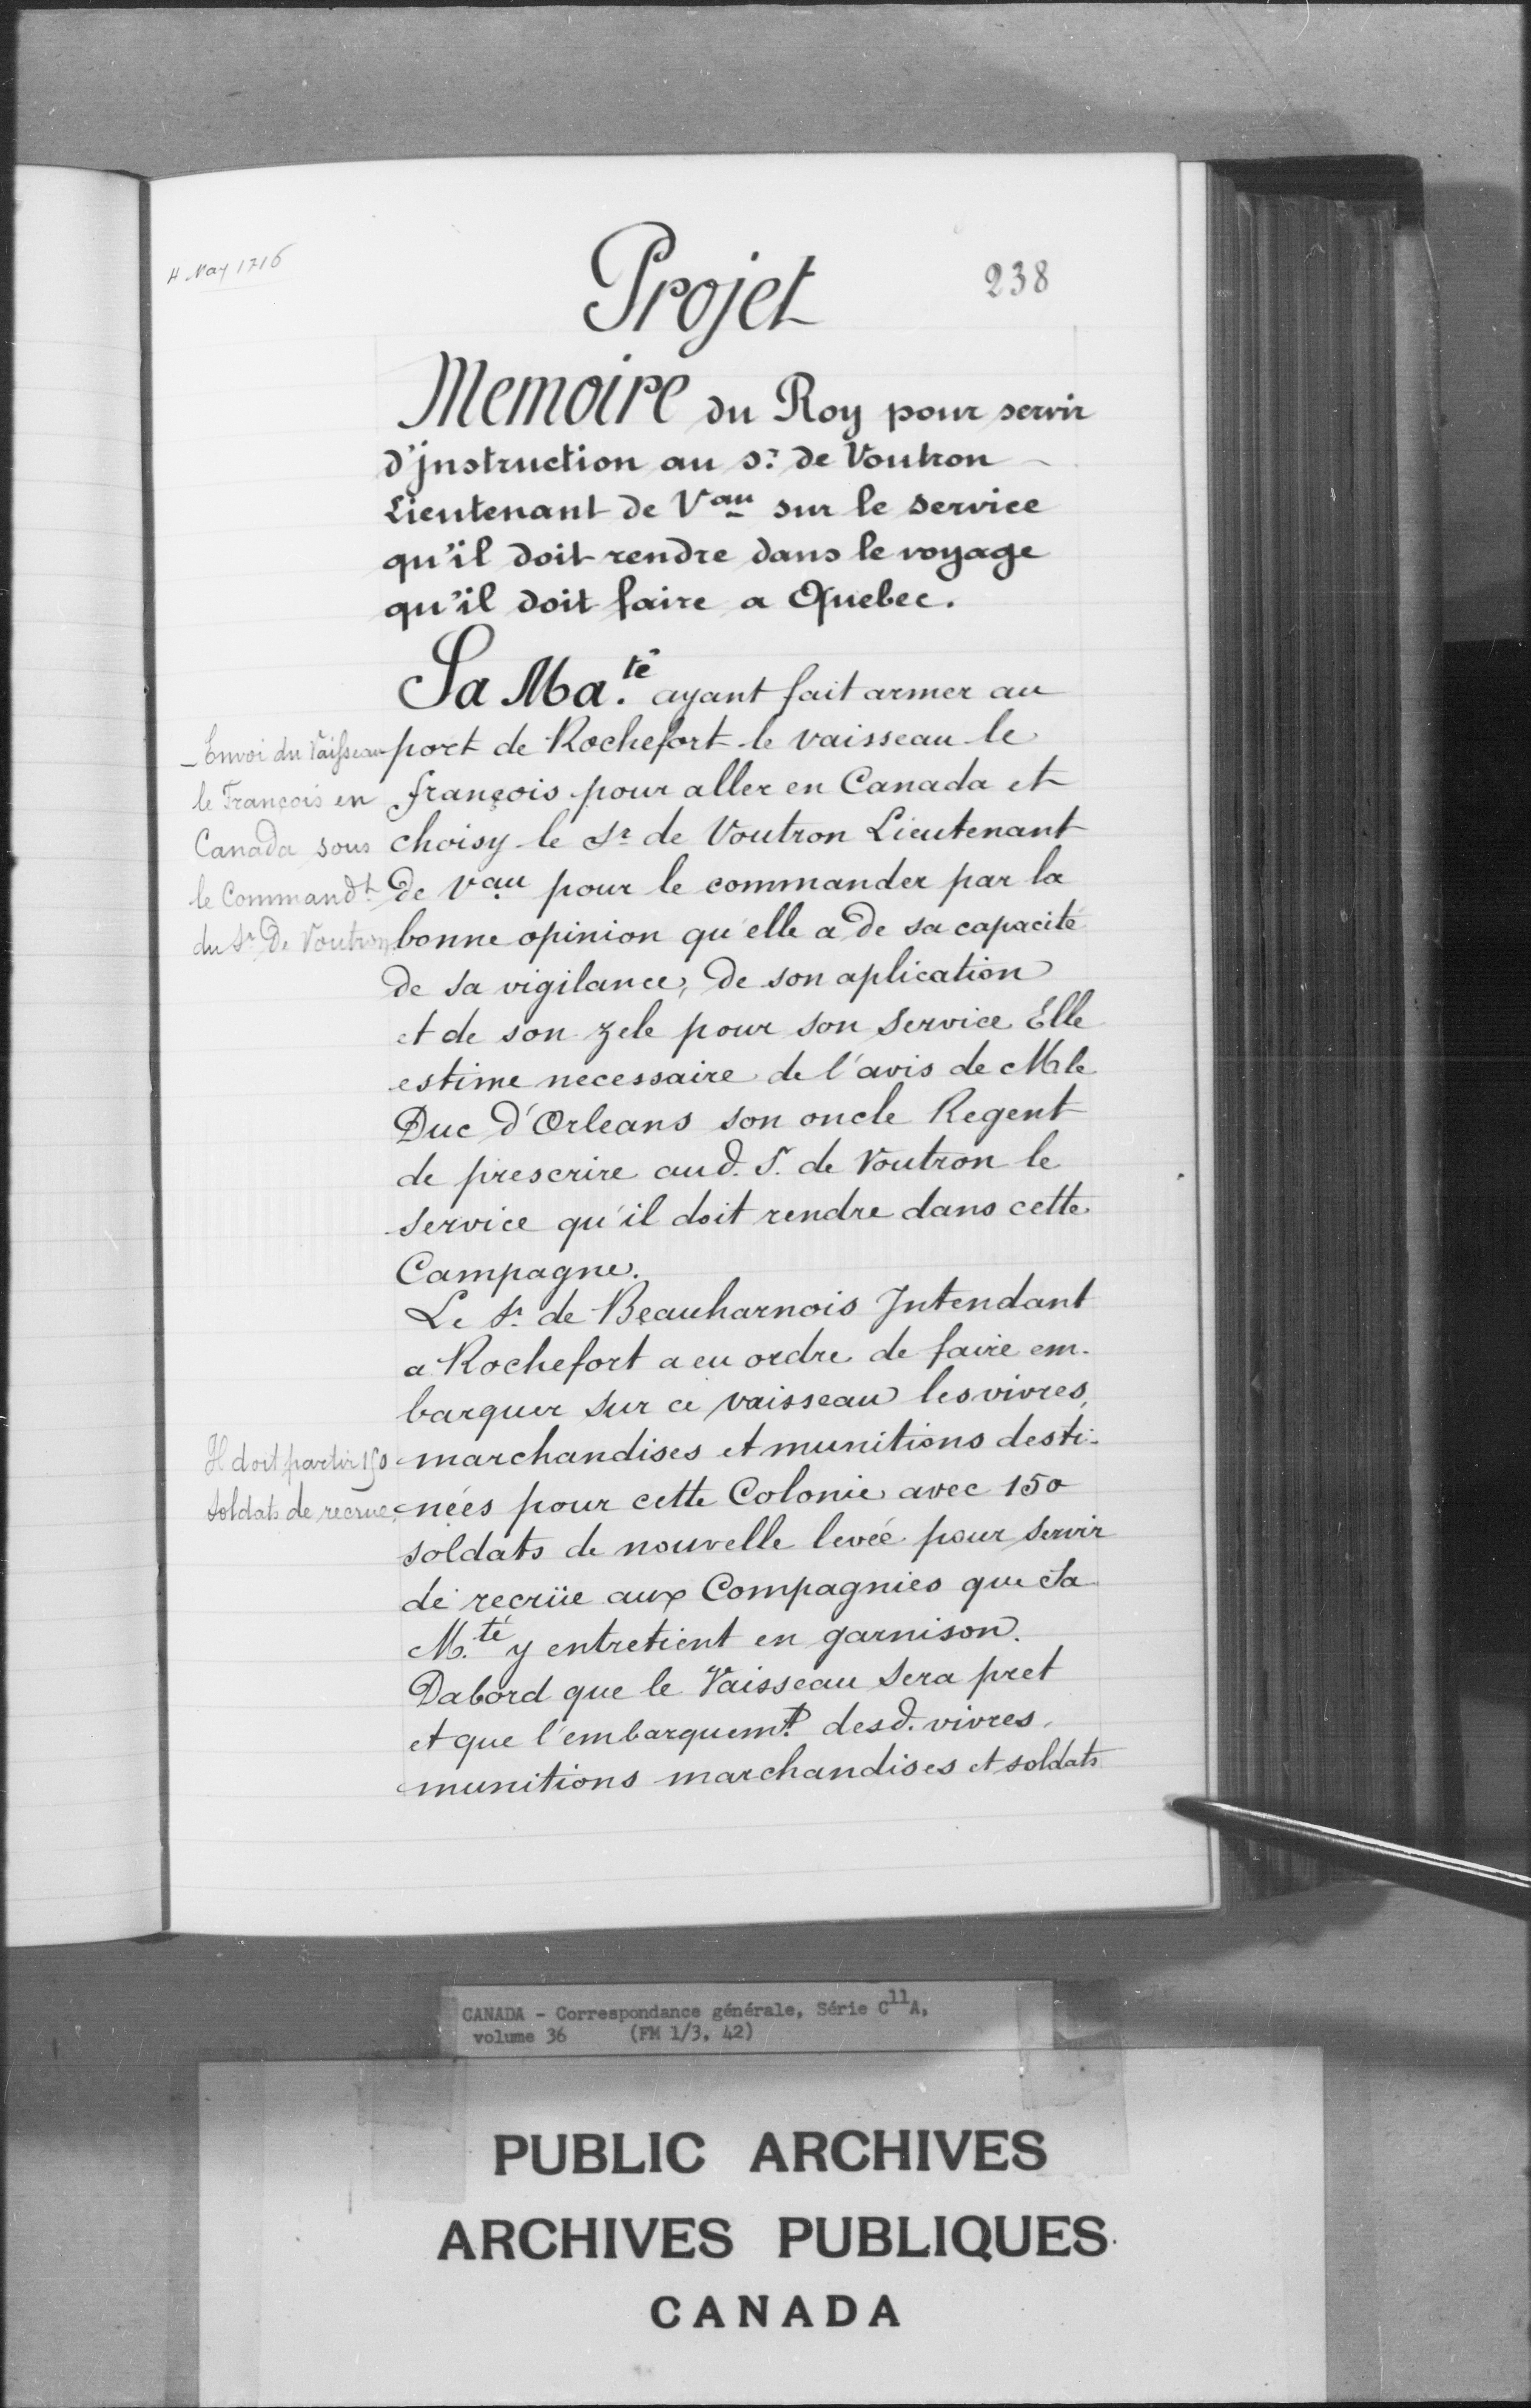 4 May 1716
238
Projet
Memoire du Roy pour servir
d'jnstruction au s.r de Voutron
Lieutenant de Vau sur le service
qu'il doit rendre dans le voyage
qu'il doit faire a Quebec.
Sa Ma.té ayant fait armer au
port de Rochefort le vaisseau le
françois pour aller en Canada et
choisy le Sr de Voutron Lieutenant
de Vau pour le commander par la
bonne opinion qu'elle a de sa capacité
de sa vigilance, de son aplication
et de son zele pour son service Elle
estime necessaire de l'avis de M le
Duc d'Orleans son oncle Regent
de prescrire aud. S. de Voutron le
service qu'il doit rendre dans cette
Campagne.
Le Sr. de Beauharnois Intendant
a Rochefort a eu ordre de faire em-
barquer sur ce vaisseau les vivres,
marchandises et munitions desti-
nées pour cette Colonie avec 150
soldats de nouvelle levée pour servir
de recrüe aux Compagnies que Sa
M.té y entretient en garnison.
Dabord que le Vaisseau sera pret
et que l'embarquemt. desd. vivres,
munitions marchandises et soldats
Envoi du Vaisseau
le François en
Canada sous
le Commandt
du Sr De Voutron
Il doit partir 150
soldats de recrue.
CANADA - Correspondance générale, Série C11A,
volume 36 (FM 1/3, 42)
PUBLIC ARCHIVES
ARCHIVES PUBLIQUES
CANADA